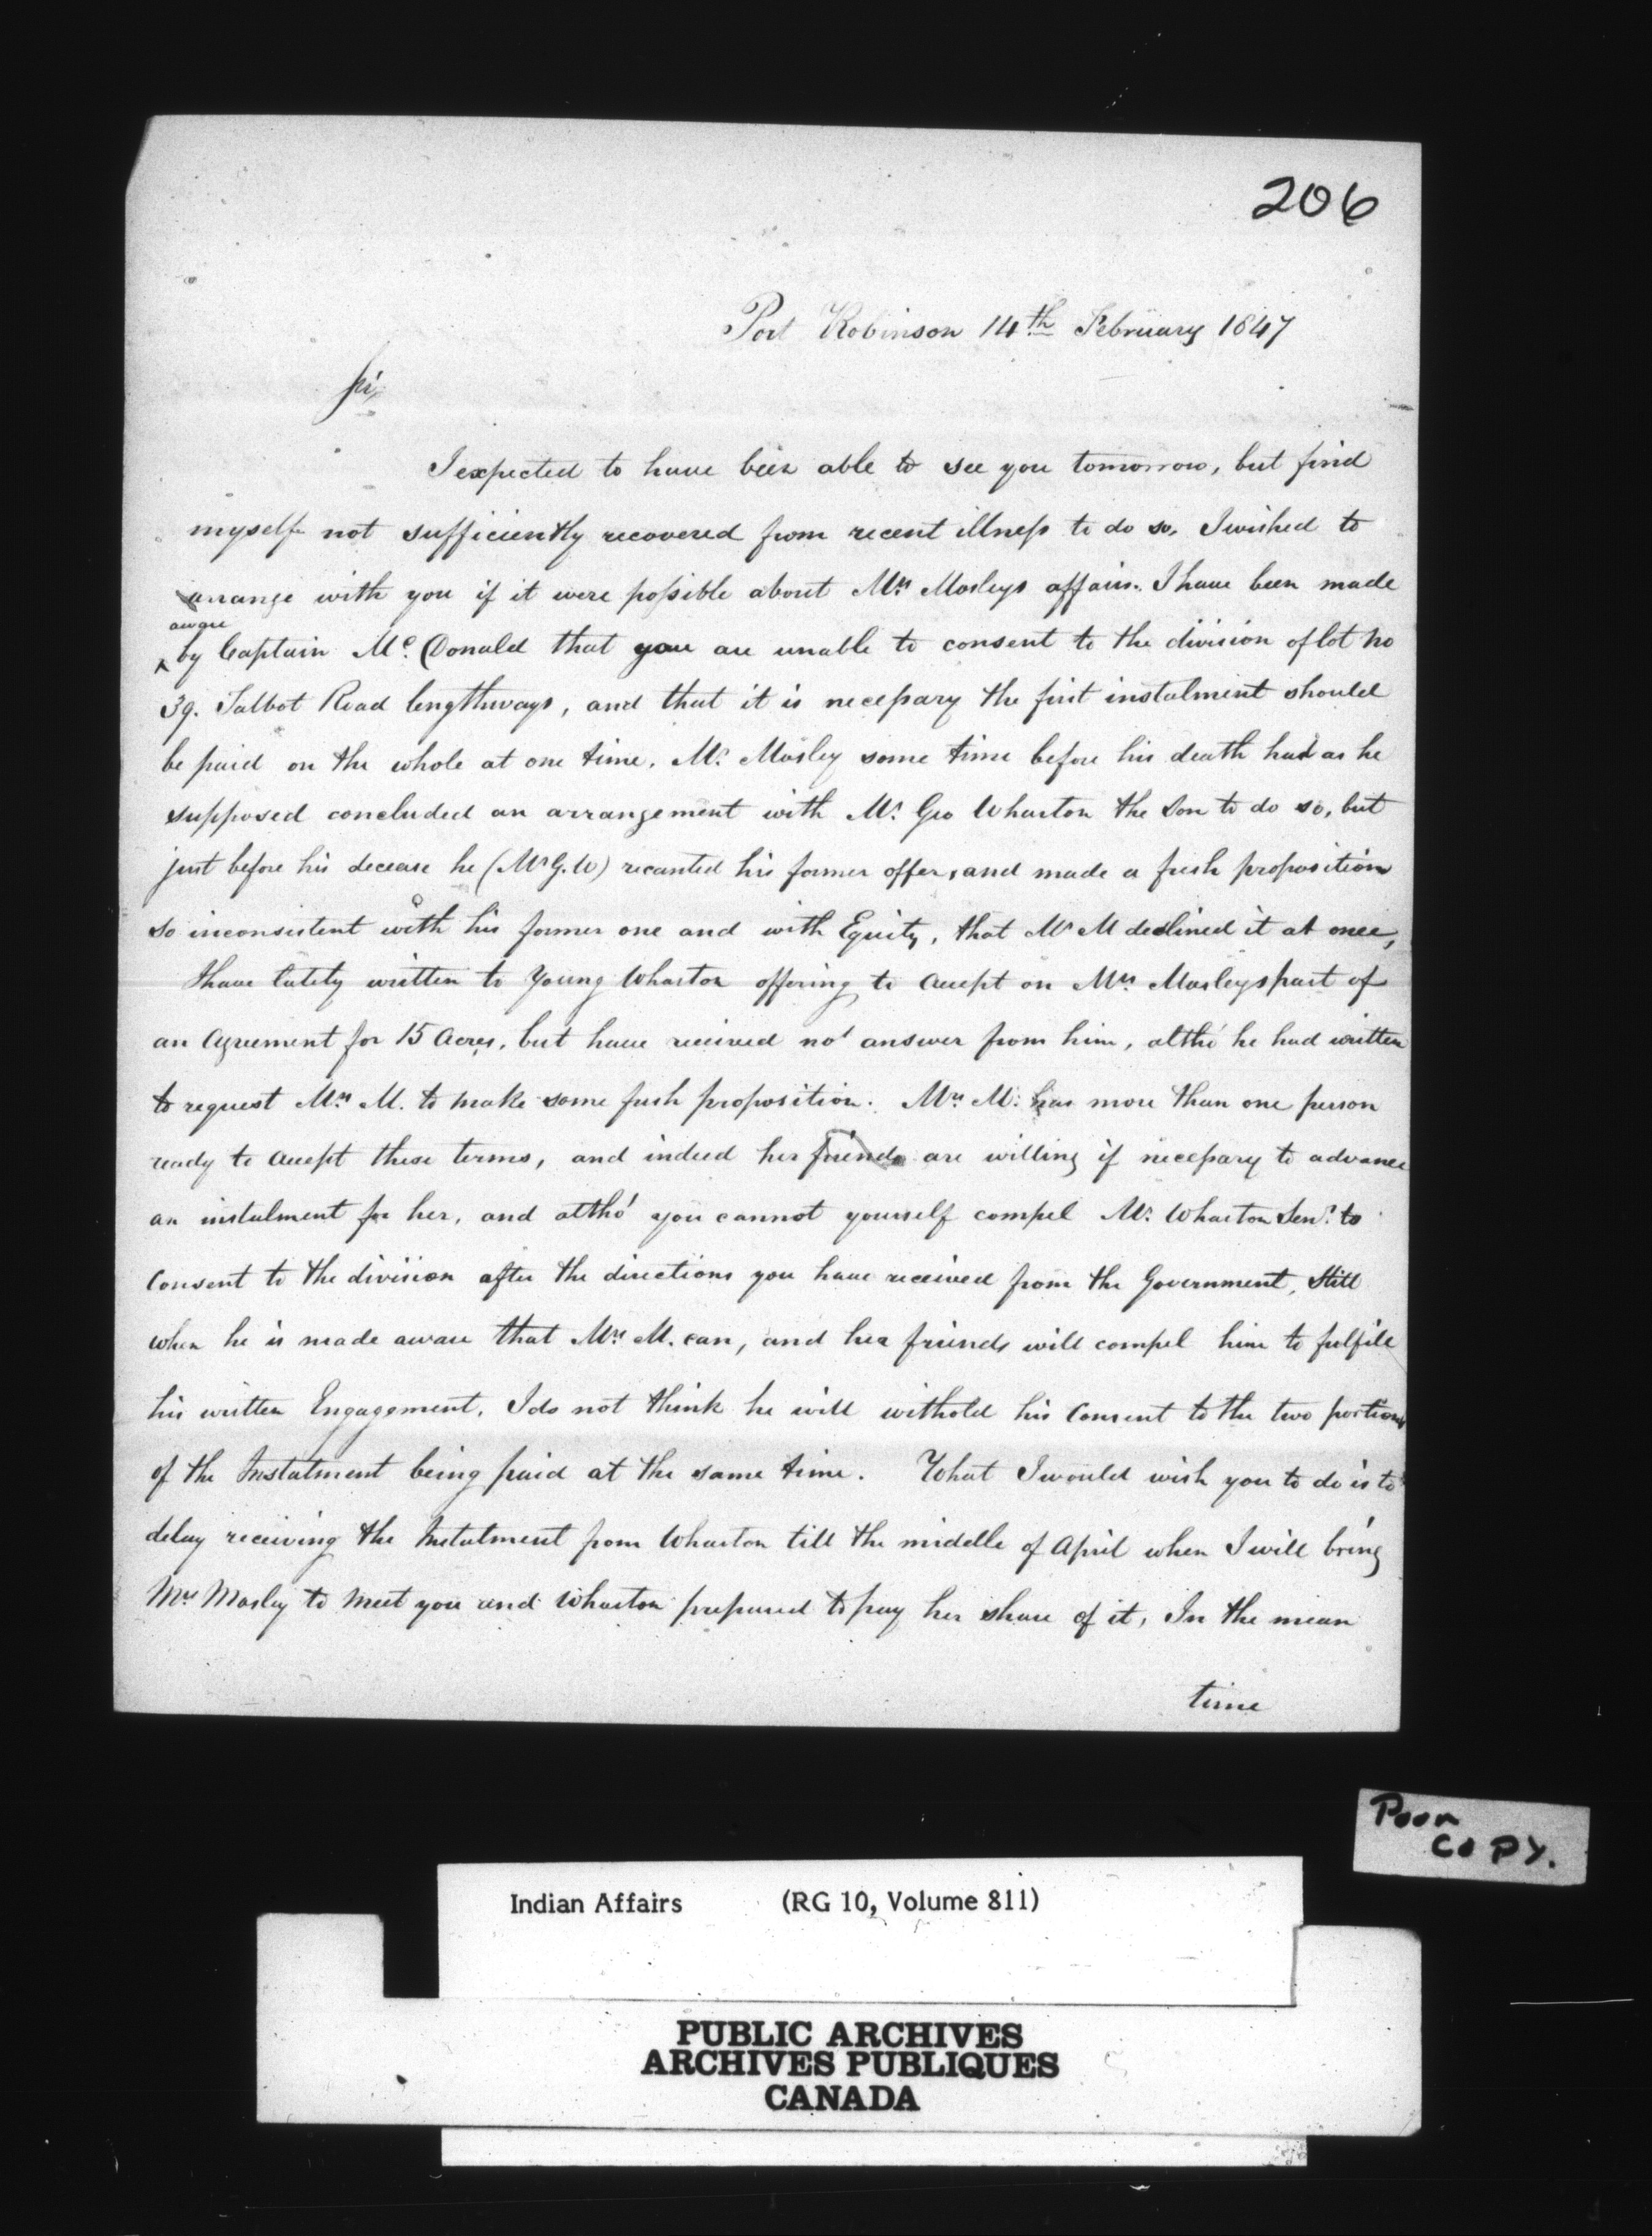 206
Port Robinson 14th February 1847
Sir,
I expected to have been able to see you tomorrow, but find
myself not sufficiently recovered from recent illness to do so. I wished to
arrange with you if it were possible about Mrs Mosleys affairs. I have been made
aware
^ by Captain Mc Donald that you are unable to consent to the division of lot no
39. Talbot Road lengthways, and that it is necessary the first instalment should
be paid on the whole at one time. Mr. Mosley some time before his death had as he
supposed concluded an arrangement with Mr. Geo Wharton the Son to do so, but
just before his decease he (Mr G. W) recanted his former offer, and made a fresh proposition
so inconsistent with his former one and with Equity, that Mr M declined it at once,
I have lately written to Young Wharton offering to accept on Mrs Mosleys part of
an Agreement for 15 Acres, but have received no answer from him, altho' he had written
to request Mrs M. to make some fresh proposition. Mrs M. has more than one person
ready to accept these terms, and indeed her friends are willing if necessary to advance
an instalment for her, and altho' you cannot yourself compel Mr. Wharton Senr. to
Consent to the division after the directions you have received from the Government, Still
when he is made aware that Mrs M. can, and her friends will compel him to fulfill
his written Engagement, I do not think he will withold his Consent to the two portions
of the Instalment being paid at the same time. What I would wish you to do is to
delay receiving the Instalment from Wharton till the middle of April when I will bring
Mrs Mosley to meet you and Wharton prepared to pay her share of it, In the mean
time
Poor
COPY.
Indian Affairs (RG 10, Volume 811)
PUBLIC ARCHIVES
ARCHIVES PUBLIQUES
CANADA